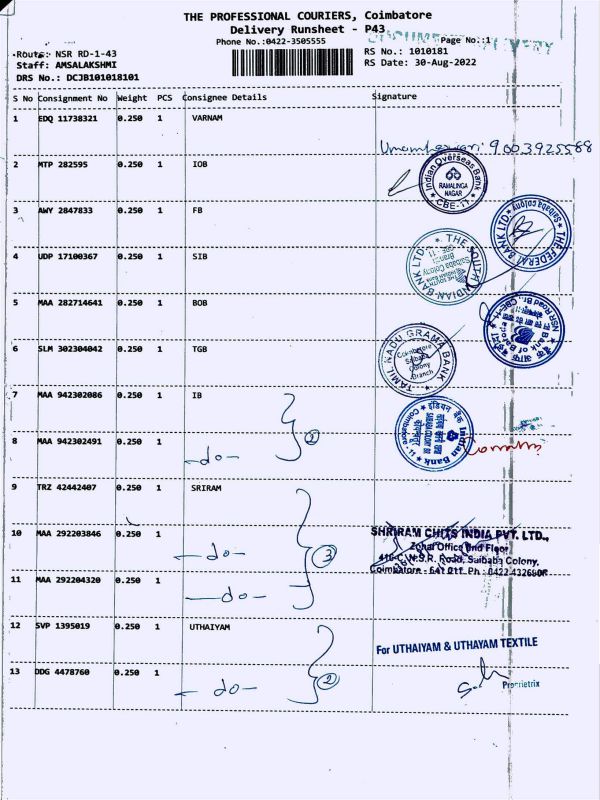 THE PROFESSIONAL COURIERS, Coimbatore
Delivery Runsheet - P43
Phone No.:0422-3505555
Page No.:1
Route: NSR RD-1-43
RS No.: 1010181
Staff: AMSALAKSHMI
RS Date: 30-Aug-2022
DRS No.: DCJB101018101
S No Consignment No Weight PCS Consignee Details Signature
1 EDQ 11738321 0.250 1 VARNAM
9003925588
2 MTP 282595 0.250 1 IOB
Indian Overseas Bank
RAMALINGA
NAGAR
CBE-11
3 AWY 2847833 0.250 1 FB
THE FEDERAL BANK LTD
Saibaba colony
4 UDP 17100367 0.250 1 SIB
THE SOUTH INDIAN BANK LTD.
Saibaba Colony
Branch
5 MAA 282714641 0.250 1 BOB
Bank of Baroda
NSR Road Br., CBE-11
6 SLM 302304042 0.250 1 TGB
TAMIL NADU GRAMA BANK
Coimbatore
Saibaba
Colony
Branch
7 MAA 942302086 0.250 1 IB
8 MAA 942302491 0.250 1 -do-
Indian Bank
Coimbatore - 11
9 TRZ 42442407 0.250 1 SRIRAM
10 MAA 292203846 0.250 1 -do- 3
SHRIRAM CHITS INDIA PVT. LTD.,
Zonal Office IInd Floor
410-C, N.S.R. Road, Saibaba Colony,
Coimbatore - 641 011. Ph : 0422
11 MAA 292204320 0.250 1 -do-
12 SVP 1395019 0.250 1 UTHAIYAM
For UTHAIYAM & UTHAYAM TEXTILE
13 DDG 4478760 0.250 1 -do- 2
Proprietrix